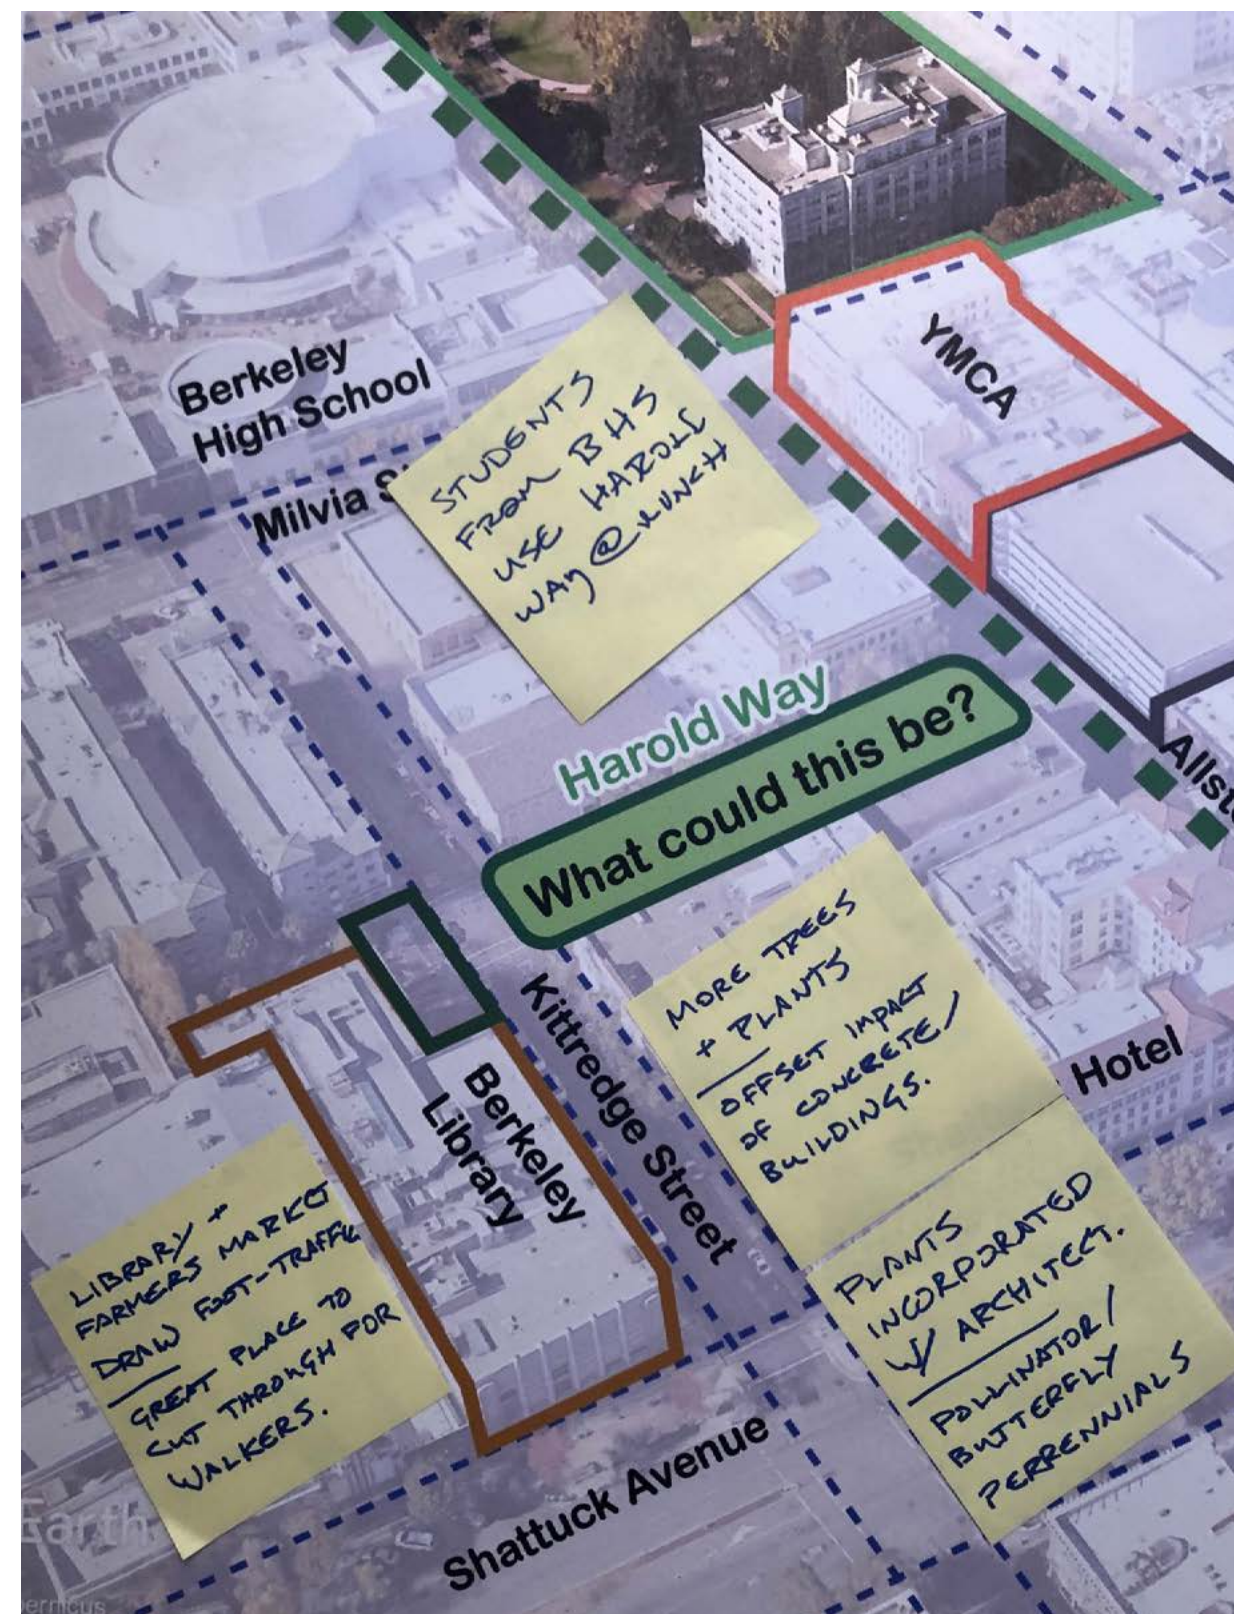 YMCA
Berkeley
High School
Milvia
STUDENTS
FROM BHS
USE HAROLD
WAY @ LUNCH
Harold Way
What could this be?
MORE TREES
+ PLANTS
OFFSET IMPACT
OF CONCRETE/
BUILDINGS.
Hotel
Kittredge Street
Berkeley
Library
LIBRARY +
FARMERS MARKET
DRAW FOOT-TRAFFIC
GREAT PLACE TO
CUT THROUGH FOR
WALKERS.
PLANTS
INCORPORATED
W/ ARCHITECT.
POLLINATOR/
BUTTERFLY
PERRENNIALS
Shattuck Avenue
Earth